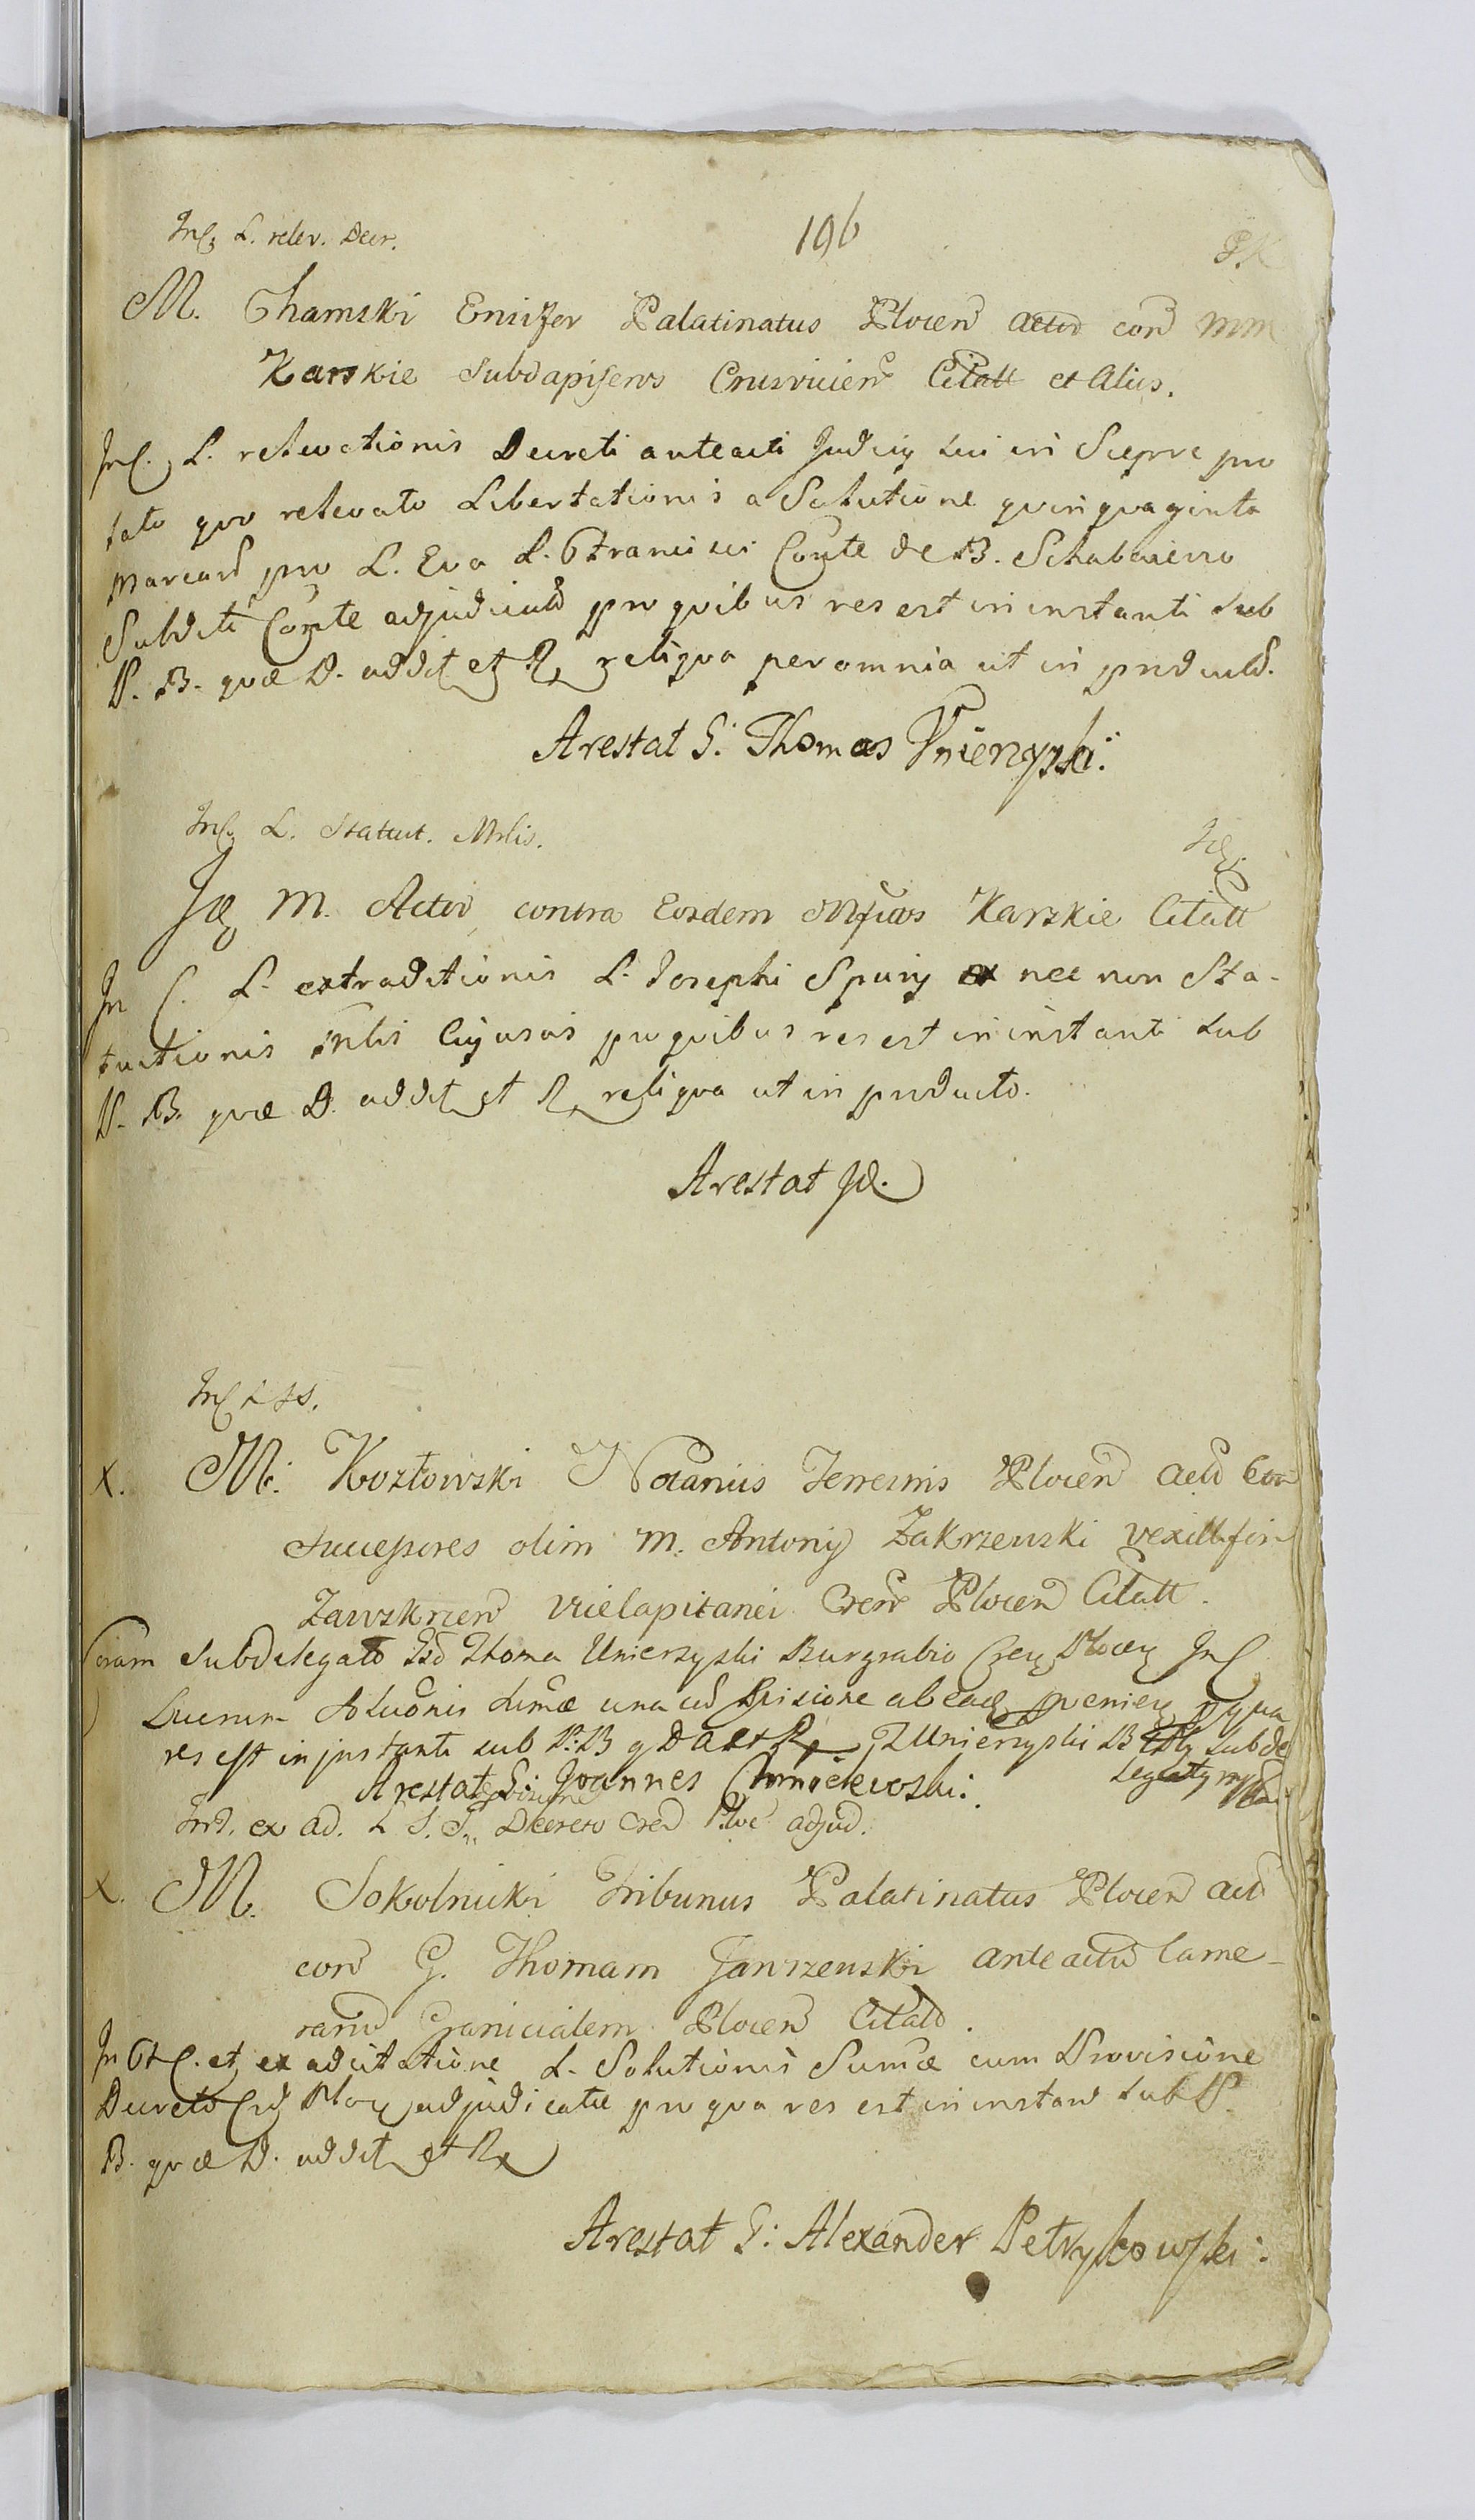 Inſ. L. relev. Decr.
196
P.K
M. Chamski Ensifer Palatinatus Plocen Actor con MM
Karskie Subdapiferos Crusvicien Citatt et Alios.
Inſ. L. relevationis Decreti anteacti Judicij sui in Sieprc pro
lato quo relevato Libertationis a Solutione quinquaginta
Marcar pro L. Eva L. Francisci Conte de B. Schabaiewo
Subditi Conte adjudicatt pro quibus res est in instanti sub
P. B. quæ D. addit et R reliqua per omnia ut in product.
Arestat G: Thomas Unierzyski:
Inſ. L. Statut. Mrlis.
Id.
Id M. Actor contra Eosdem Mfcos Karskie Citatt
In C. L. extraditionis L. Josephi Spurij nec non Sta-
tuitionis Mrlis Cujusvis pro quibus res est in instanti sub
P. B. quæ D. addit et R reliqua ut in producto.
Arestat Id.
Inſ L S S.
X. M. Kozłowski Notarius Terrestris Plocen Act Con
Successores olim M. Antonij Zakrzewski Vexilliferi
Zawskrzen Vicecapitanei Cren Plocen Citatt.
Coram Subdelegato Thoma Unierzyski Burgrabio Cren Plocen Inſ
Sumæ una cu ab eade
res est in instanti sub P: B q D a et R T Unierzyski B Subde
legaty
Arestat G: Joannes Chmielewski:
Ins. ex ad. L S. S. Decreto Cren Ploc adjud.
X. M. Sokolnicki Tribunus Palatinatus Plocen Act
con G. Thomam Jaworzenski anteactu Came-
rariu Granicialem Plocen Citatt.
In C. et ex adcitatione L. Solutionis Sumæ cum Provisione
Decreto Cre Ploc adjudicatæ pro qua res est in instan sub P.
B. quæ D. addit et R
Arestat G: Alexander Petrykowski: